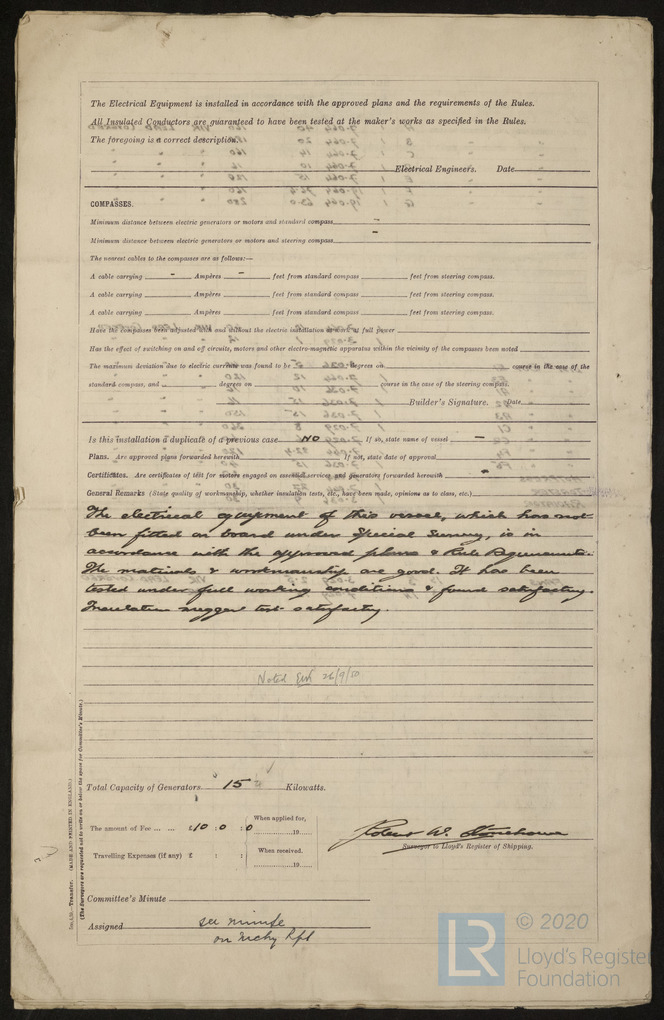 The Electrical Equipment is installed in accordance with the approved plans and the requirements of the Rules.
All Insulated Conductors are guaranteed to have been tested at the maker's works as specified in the Rules.
The foregoing is a correct description.
Electrical Engineers. Date
COMPASSES.
Minimum distance between electric generators or motors and standard compass -
Minimum distance between electric generators or motors and steering compass -
The nearest cables to the compasses are as follows:—
A cable carrying - Ampères - feet from standard compass feet from steering compass.
A cable carrying Ampères feet from standard compass feet from steering compass.
A cable carrying Ampères feet from standard compass feet from steering compass.
Have the compasses been adjusted with and without the electric installation at work at full power
Has the effect of switching on and off circuits, motors and other electro-magnetic apparatus within the vicinity of the compasses been noted
The maximum deviation due to electric currents was found to be degrees on course in the case of the
standard compass, and degrees on course in the case of the steering compass.
Builder's Signature. Date
Is this installation a duplicate of a previous case NO If so, state name of vessel -
Plans. Are approved plans forwarded herewith If not, state date of approval
Certificates. Are certificates of test for motors engaged on essential services and generators forwarded herewith -
General Remarks (State quality of workmanship, whether insulation tests, etc., have been made, opinions as to class, etc.)
The electrical equipment of this vessel, which has not
been fitted on board under Special Survey, is in
accordance with the approved plans & Rule Requirements.
The materials & workmanship are good. It has been
tested under full working conditions & found satisfactory.
Insulation megger test satisfactory.
Noted 26/9/50
Total Capacity of Generators 15 Kilowatts.
The amount of Fee ... ... £10 : 0 : 0
When applied for,
19
Travelling Expenses (if any) £ : :
When received.
19
Robert W.
Surveyor to Lloyd's Register of Shipping.
Committee's Minute
Assigned see minute
on Mchy Rpt
Transfer. (MADE AND PRINTED IN ENGLAND.)
(The Surveyors are requested not to write on or below the space for Committee's Minute.)
LR
© 2020
Lloyd's Register
Foundation